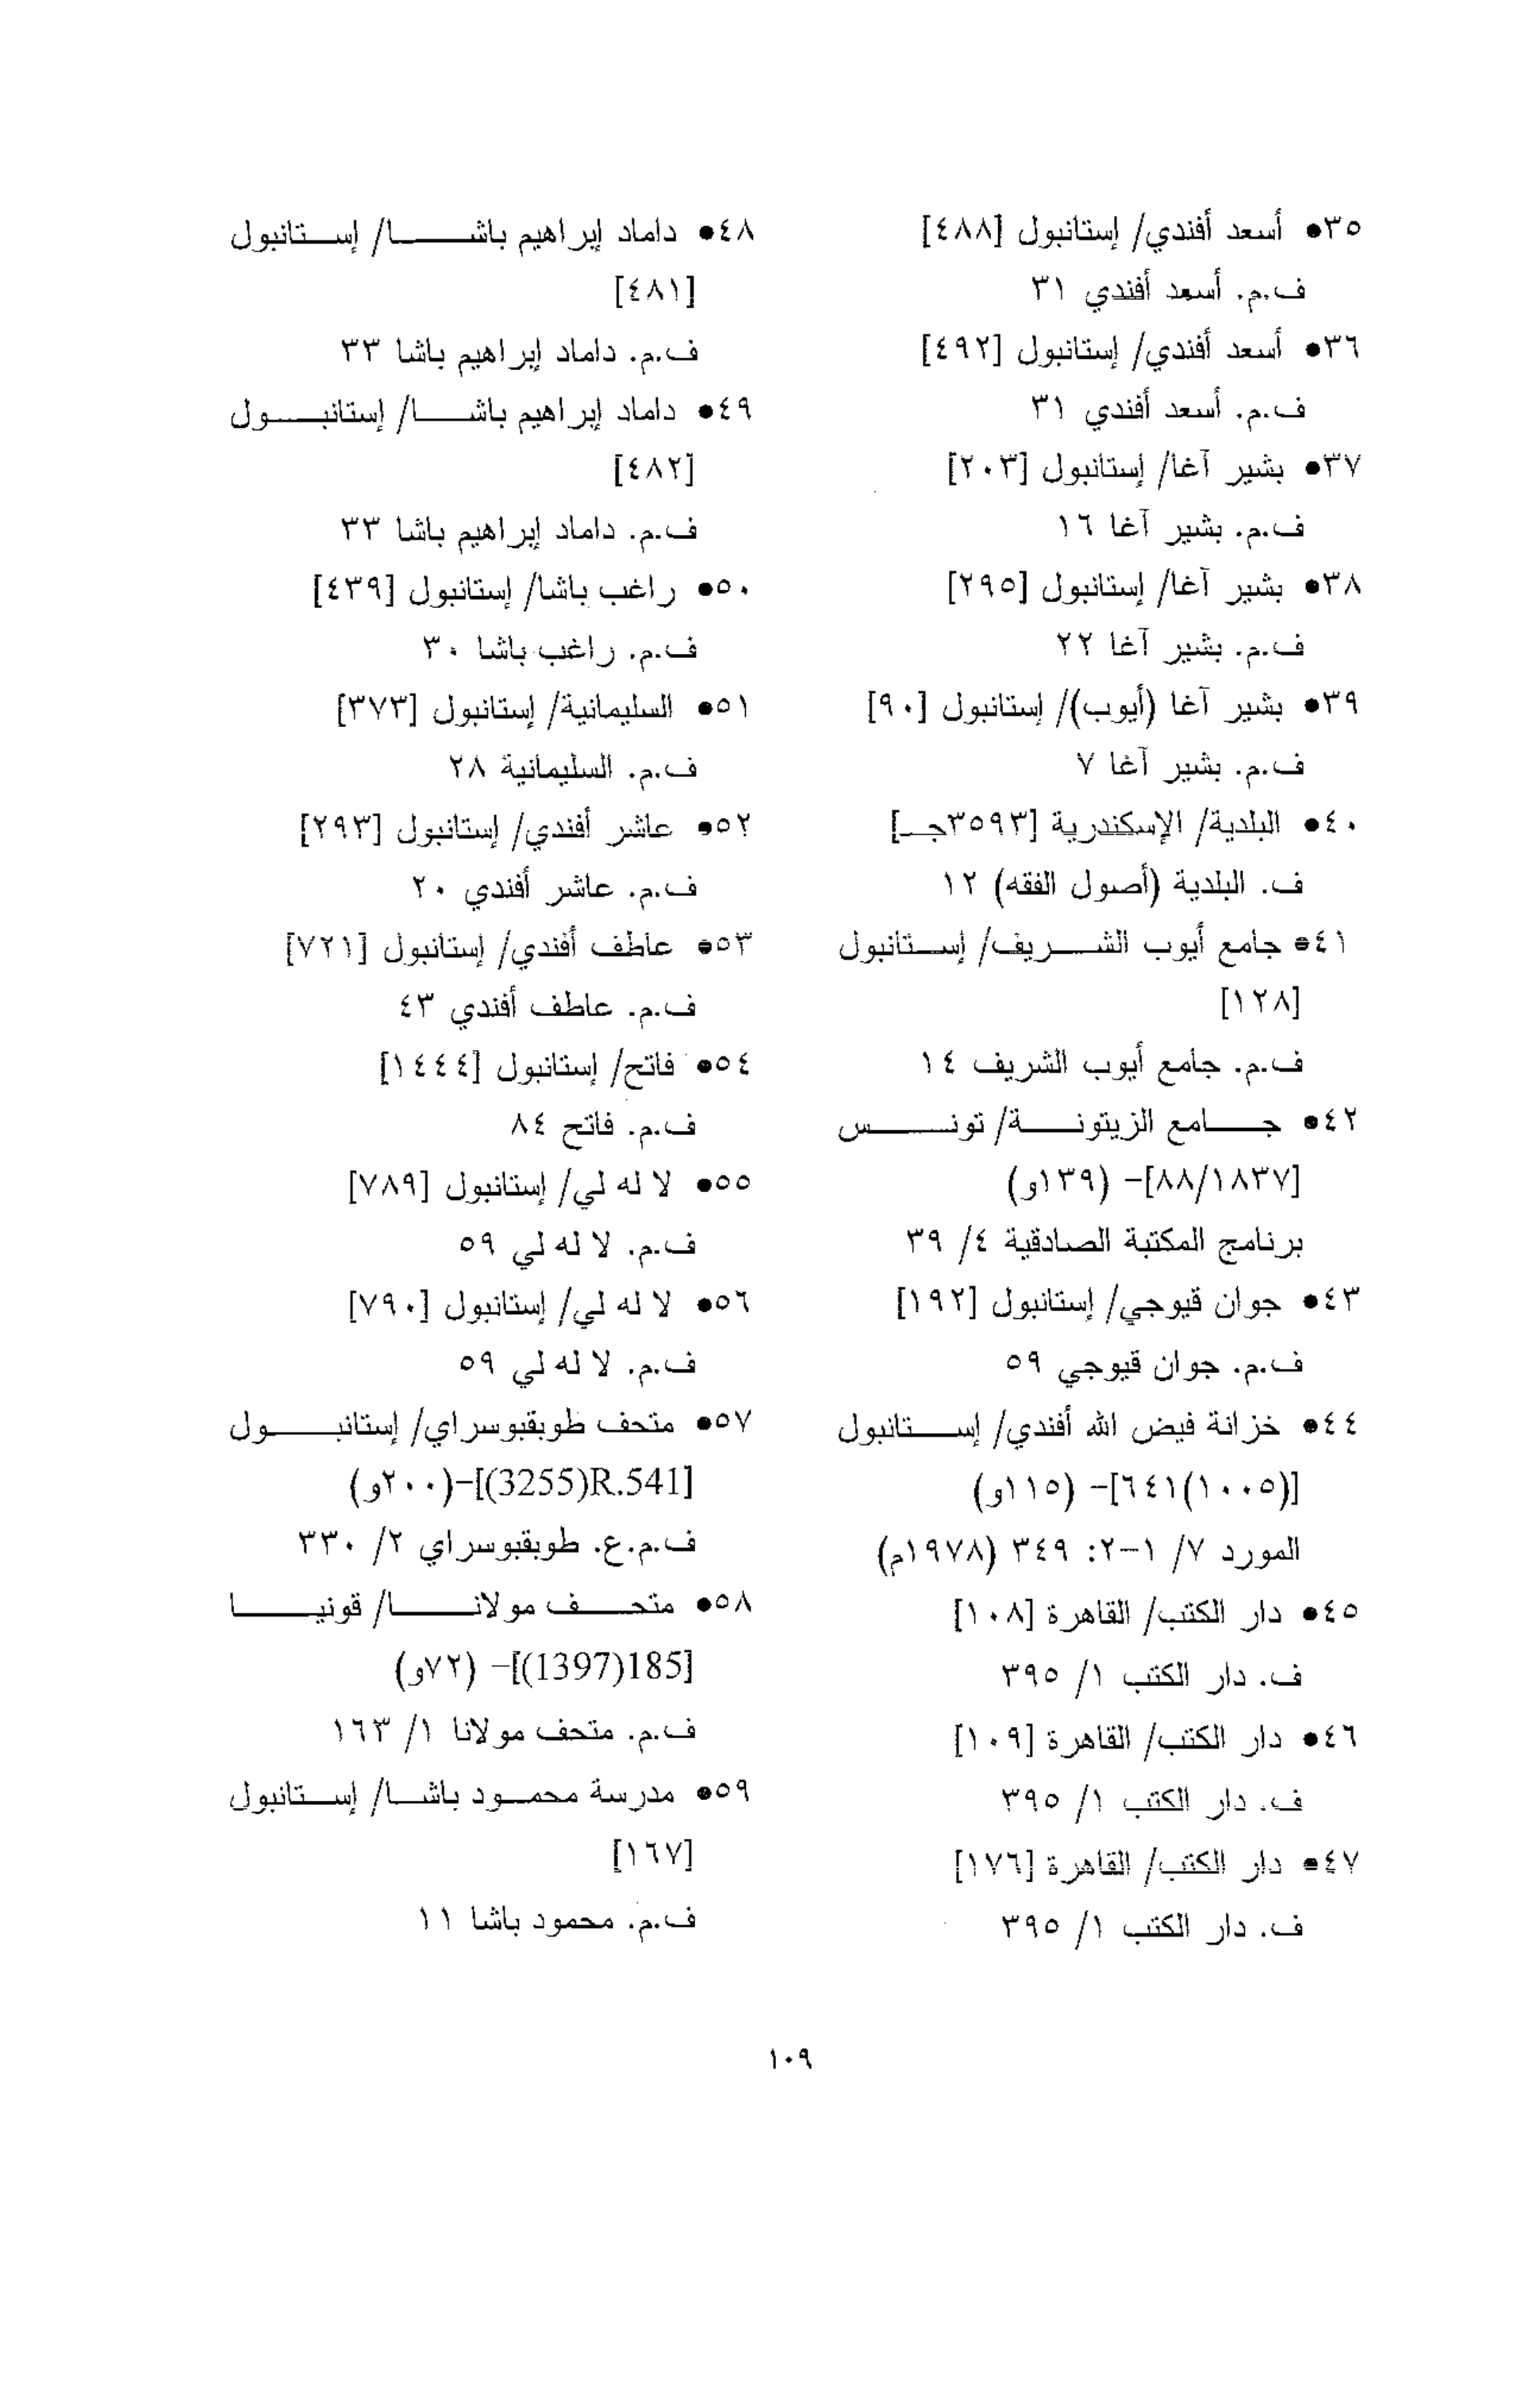 ٣٥• أسعد أفندي/ إستانبول [٤٨٨]
ف.م. أسعد أفندي ٣١
٣٦• أسعد أفندي/ إستانبول [٤٩٢]
ف.م. أسعد أفندي ٣١
٣٧• بشير آغا/ إستانبول [٢٠٣]
ف.م. بشير آغا ١٦
٣٨• بشير آغا/ إستانبول [٢٩٥]
ف.م. بشير آغا ٢٢
٣٩• بشير آغا (أيوب)/ إستانبول [٩٠]
ف.م. بشير آغا ٧
٤٠• البلدية/ الإسكندرية [٣٥٩٣جـ]
ف. البلدية (أصول الفقه) ١٢
٤١• جامع أيوب الشريف/ إستانبول
[١٢٨]
ف.م. جامع أيوب الشريف ١٤
٤٢• جامع الزيتونة/ تونس
[٨٨/١٨٣٧]- (١٣٩و)
برنامج المكتبة الصادقية ٤/ ٣٩
٤٣• جوان قيوجي/ إستانبول [١٩٢]
ف.م. جوان قيوجي ٥٩
٤٤• خزانة فيض الله أفندي/ إستانبول
[(١٠٠٥)٦٤١]- (١١٥و)
المورد ٧/ ١-٢: ٣٤٩ (١٩٧٨م)
٤٥• دار الكتب/ القاهرة [١٠٨]
ف. دار الكتب ١/ ٣٩٥
٤٦• دار الكتب/ القاهرة [١٠٩]
ف. دار الكتب ١/ ٣٩٥
٤٧• دار الكتب/ القاهرة [١٧٦]
ف. دار الكتب ١/ ٣٩٥
٤٨• داماد إبراهيم باشا/ إستانبول
[٤٨١]
ف.م. داماد إبراهيم باشا ٣٣
٤٩• داماد إبراهيم باشا/ إستانبول
[٤٨٢]
ف.م. داماد إبراهيم باشا ٣٣
٥٠• راغب باشا/ إستانبول [٤٣٩]
ف.م. راغب باشا ٣٠
٥١• السليمانية/ إستانبول [٣٧٣]
ف.م. السليمانية ٢٨
٥٢• عاشر أفندي/ إستانبول [٢٩٣]
ف.م. عاشر أفندي ٢٠
٥٣• عاطف أفندي/ إستانبول [٧٢١]
ف.م. عاطف أفندي ٤٣
٥٤• فاتح/ إستانبول [١٤٤٤]
ف.م. فاتح ٨٤
٥٥• لا له لي/ إستانبول [٧٨٩]
ف.م. لا له لي ٥٩
٥٦• لا له لي/ إستانبول [٧٩٠]
ف.م. لا له لي ٥٩
٥٧• متحف طوبقبوسراي/ إستانبول
[R.541(3255)]-(٢٠٠و)
ف.م.ع. طوبقبوسراي ٢/ ٣٣٠
٥٨• متحف مولانا/ قونيا
[185(1397)]- (٧٢و)
ف.م. متحف مولانا ١/ ١٦٣
٥٩• مدرسة محمود باشا/ إستانبول
[١٦٧]
ف.م. محمود باشا ١١
١٠٩